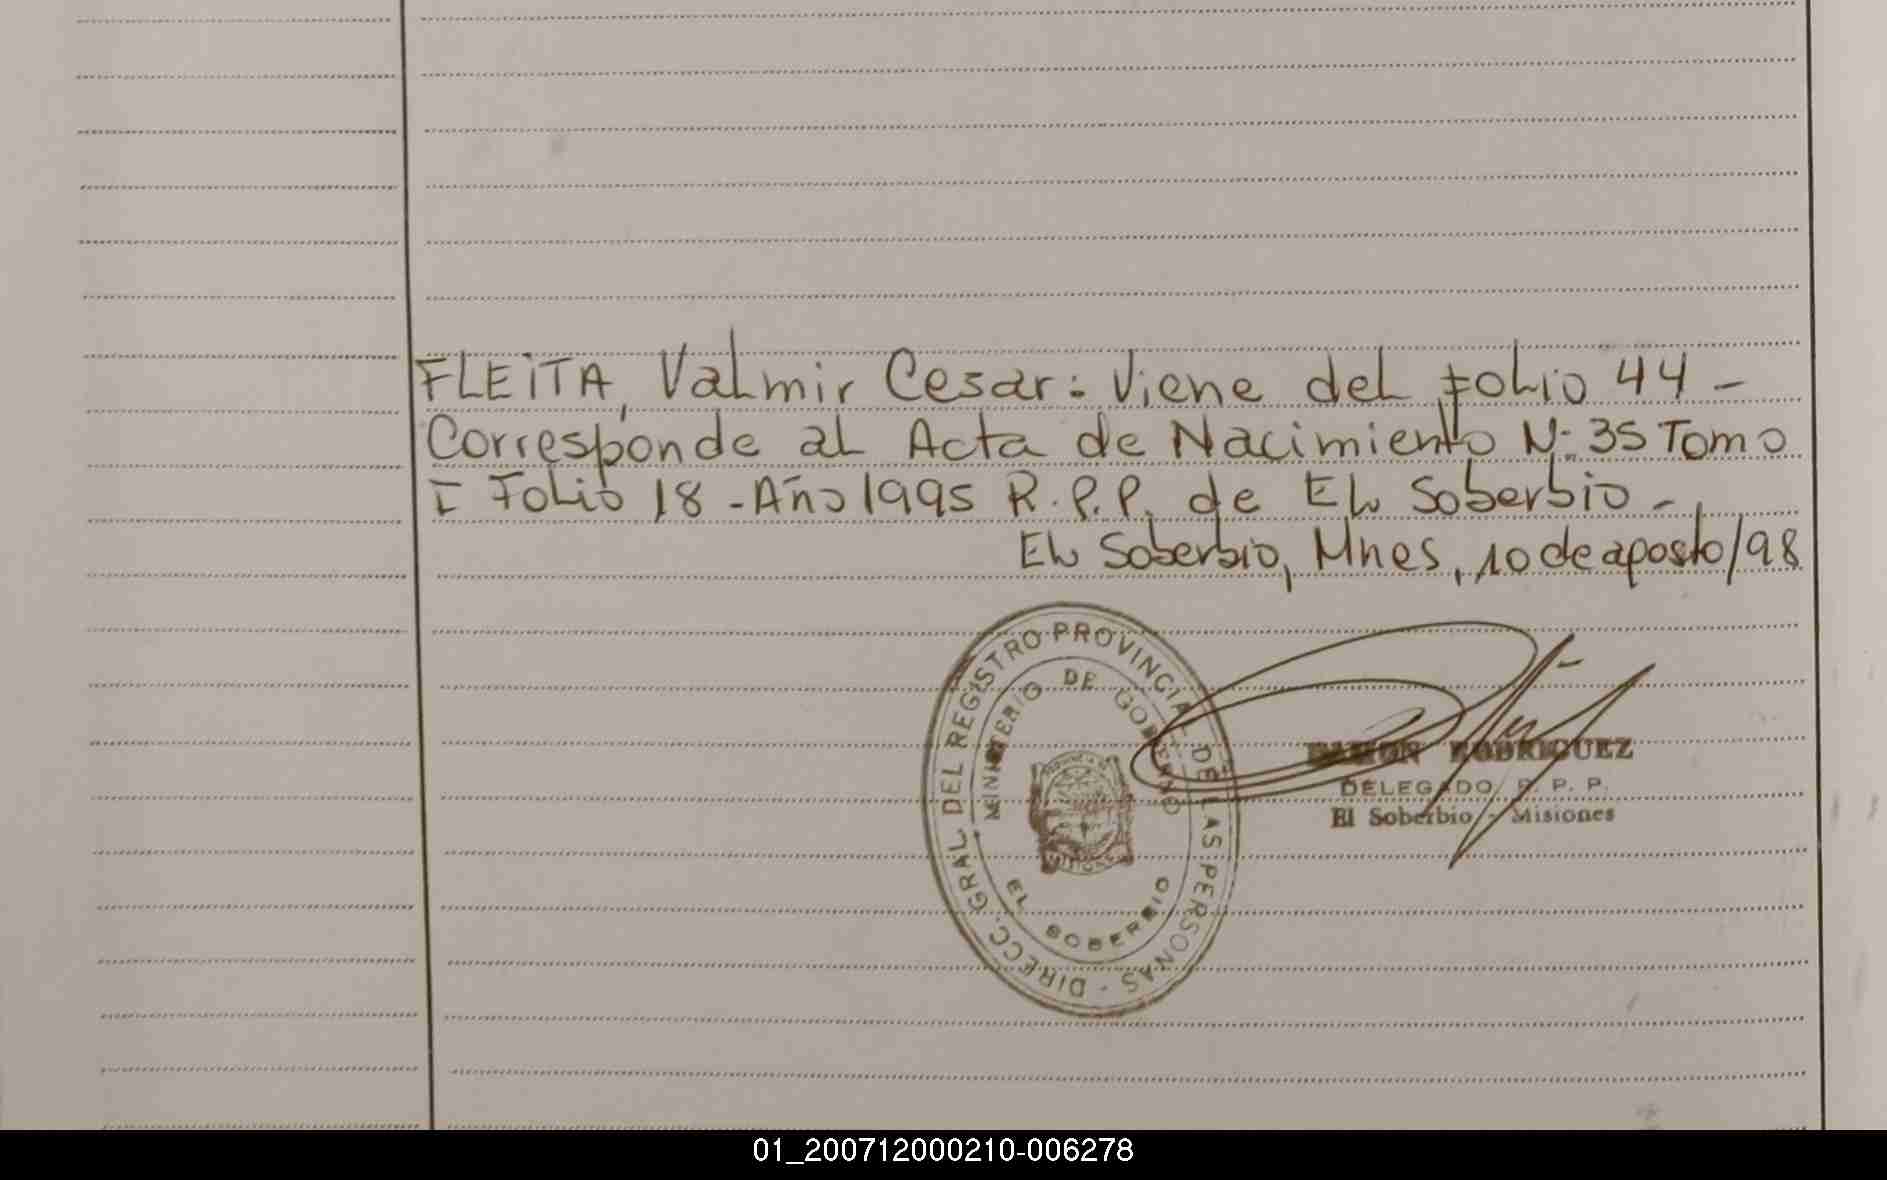 FLEITA, Valmir Cesar: Viene del folio 44 -
Corresponde al Acta de Nacimiento N: 35 Tomo
I Folio 18 - Año 1995 R.P.P. de El Soberbio -
El Soberbio, Mnes, 10 de agosto/98
DIRECC. GRAL. DEL REGISTRO PROVINCIAL DE LAS PERSONAS -
MINISTERIO DE GOBIERNO
EL SOBERBIO
RAMON RODRIGUEZ
DELEGADO R. P. P.
El Soberbio - Misiones
01_200712000210-006278